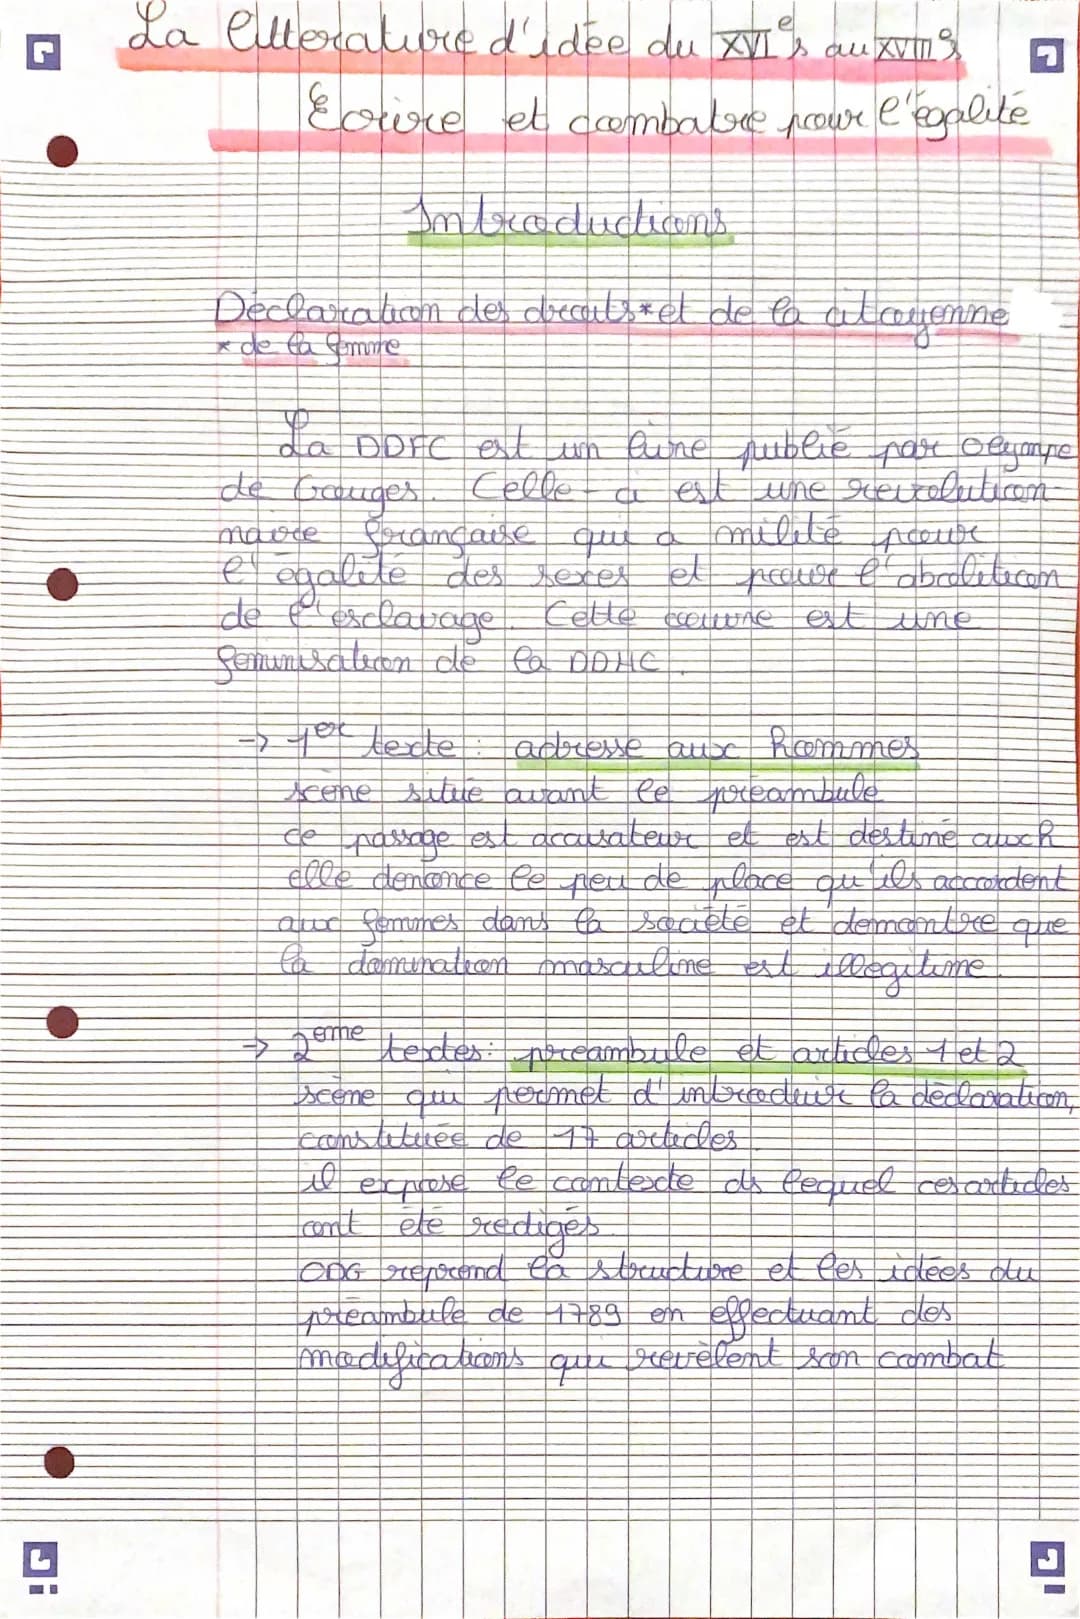 La litterature d'idée du XVIe s au XVIII s
Ecrire et combatre pour l'égalité
Introductions
Déclaration des droits * et de la citoyenne
* de la femme
La DDFC est un livre publié par Olympe
de Gouges. Celle-ci est une revolution-
naire française qui a milité pour
l'égalité des sexes et pour l'abolition
de l'esclavage. Cette oeuvre est une
feminisation de la DDHC.
-> 1er texte : adresse aux Hommes
scène située avant le préambule
ce passage est accusateur et est destiné aux H
elle denonce le peu de place qu'ils accordent
aux femmes dans la société et demontre que
la domination masculine est illegitime
-> 2eme textes : préambule et articles 1 et 2
scène qui permet d'introduir la déclaration,
constituée de 17 articles
il expose le contexte ds lequel ces articles
ont été redigés
ODG reprend la structure et les idées du
préambule de 1789 en effectuant des
modifications qui revèlent son combat